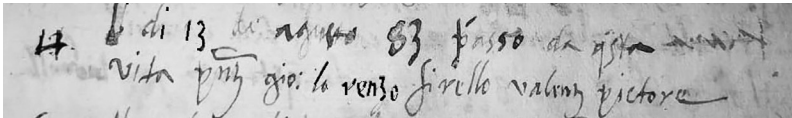 17 A di 13 de agusto 83 passo da qsta
vita pntj gio: lorenzo firello valentj pictore